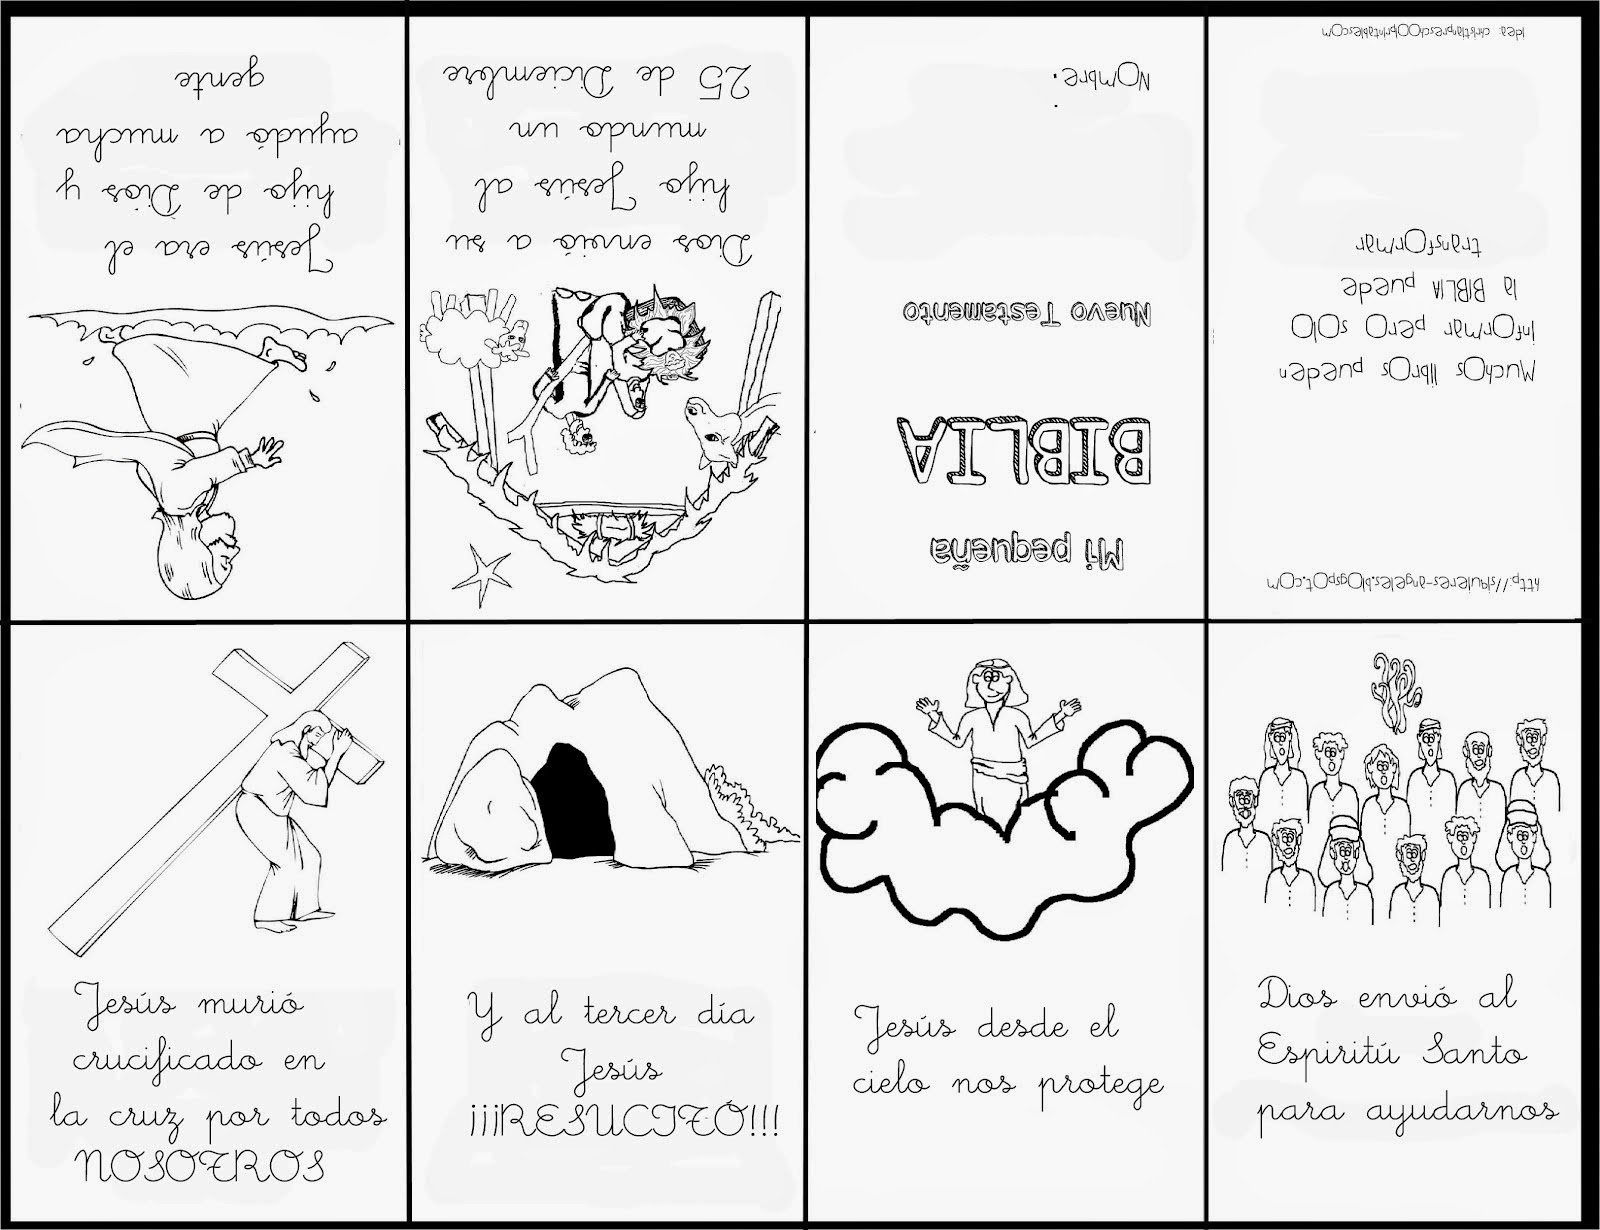 Mi pequeña
BIBLIA
Nuevo Testamento
Nombre:
Dios envió a su
hijo Jesús al
mundo un
25 de Diciembre
Jesús era el
hijo de Dios y
ayudó a mucha
gente
Jesús murió
crucificado en
la cruz por todos
NOSOTROS
Y al tercer día
Jesús
¡¡¡RESUCITÓ!!!
Jesús desde el
cielo nos protege
Dios envió al
Espiritú Santo
para ayudarnos
http://siquieres-angeles.blogspot.com
Muchos libros pueden
informar pero solo
la BIBLIA puede
transformar
Idea: christianpreschoolprintables.com